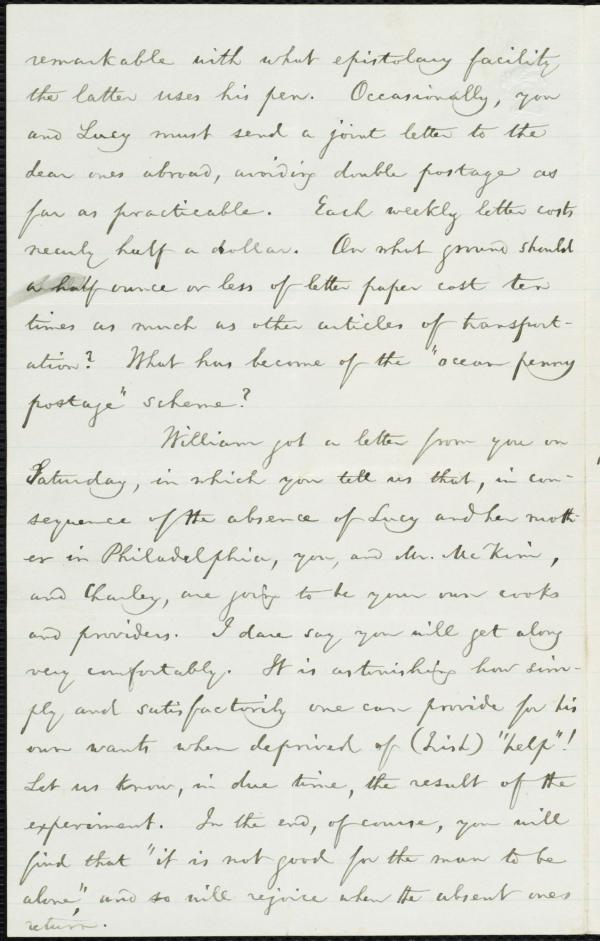 remarkable with what epistolary facility
the latter uses his pen. Occasionally, you
and Lucy must send a joint letter to the
dear ones abroad, avoiding double postage as
far as practicable. Each weekly letter costs
nearly half a dollar. On what ground should
a half ounce or less of letter paper cost ten
times as much as other articles of transport-
ation? What has become of the "ocean penny
postage" scheme?
William got a letter from you on
Saturday, in which you tell us that, in con-
sequence of the absence of Lucy and her moth-
er in Philadelphia, you, and Mr. McKim,
and Charley, are going to be your own cooks
and providers. I dare say you will get along
very comfortably. It is astonishing how sim-
ply and satisfactorily one can provide for his
own wants when deprived of (Irish) "help"!
Let us know, in due time, the result of the
experiment. In the end, of course, you will
find that "it is not good for the man to be
alone," and so will rejoice when the absent ones
return.